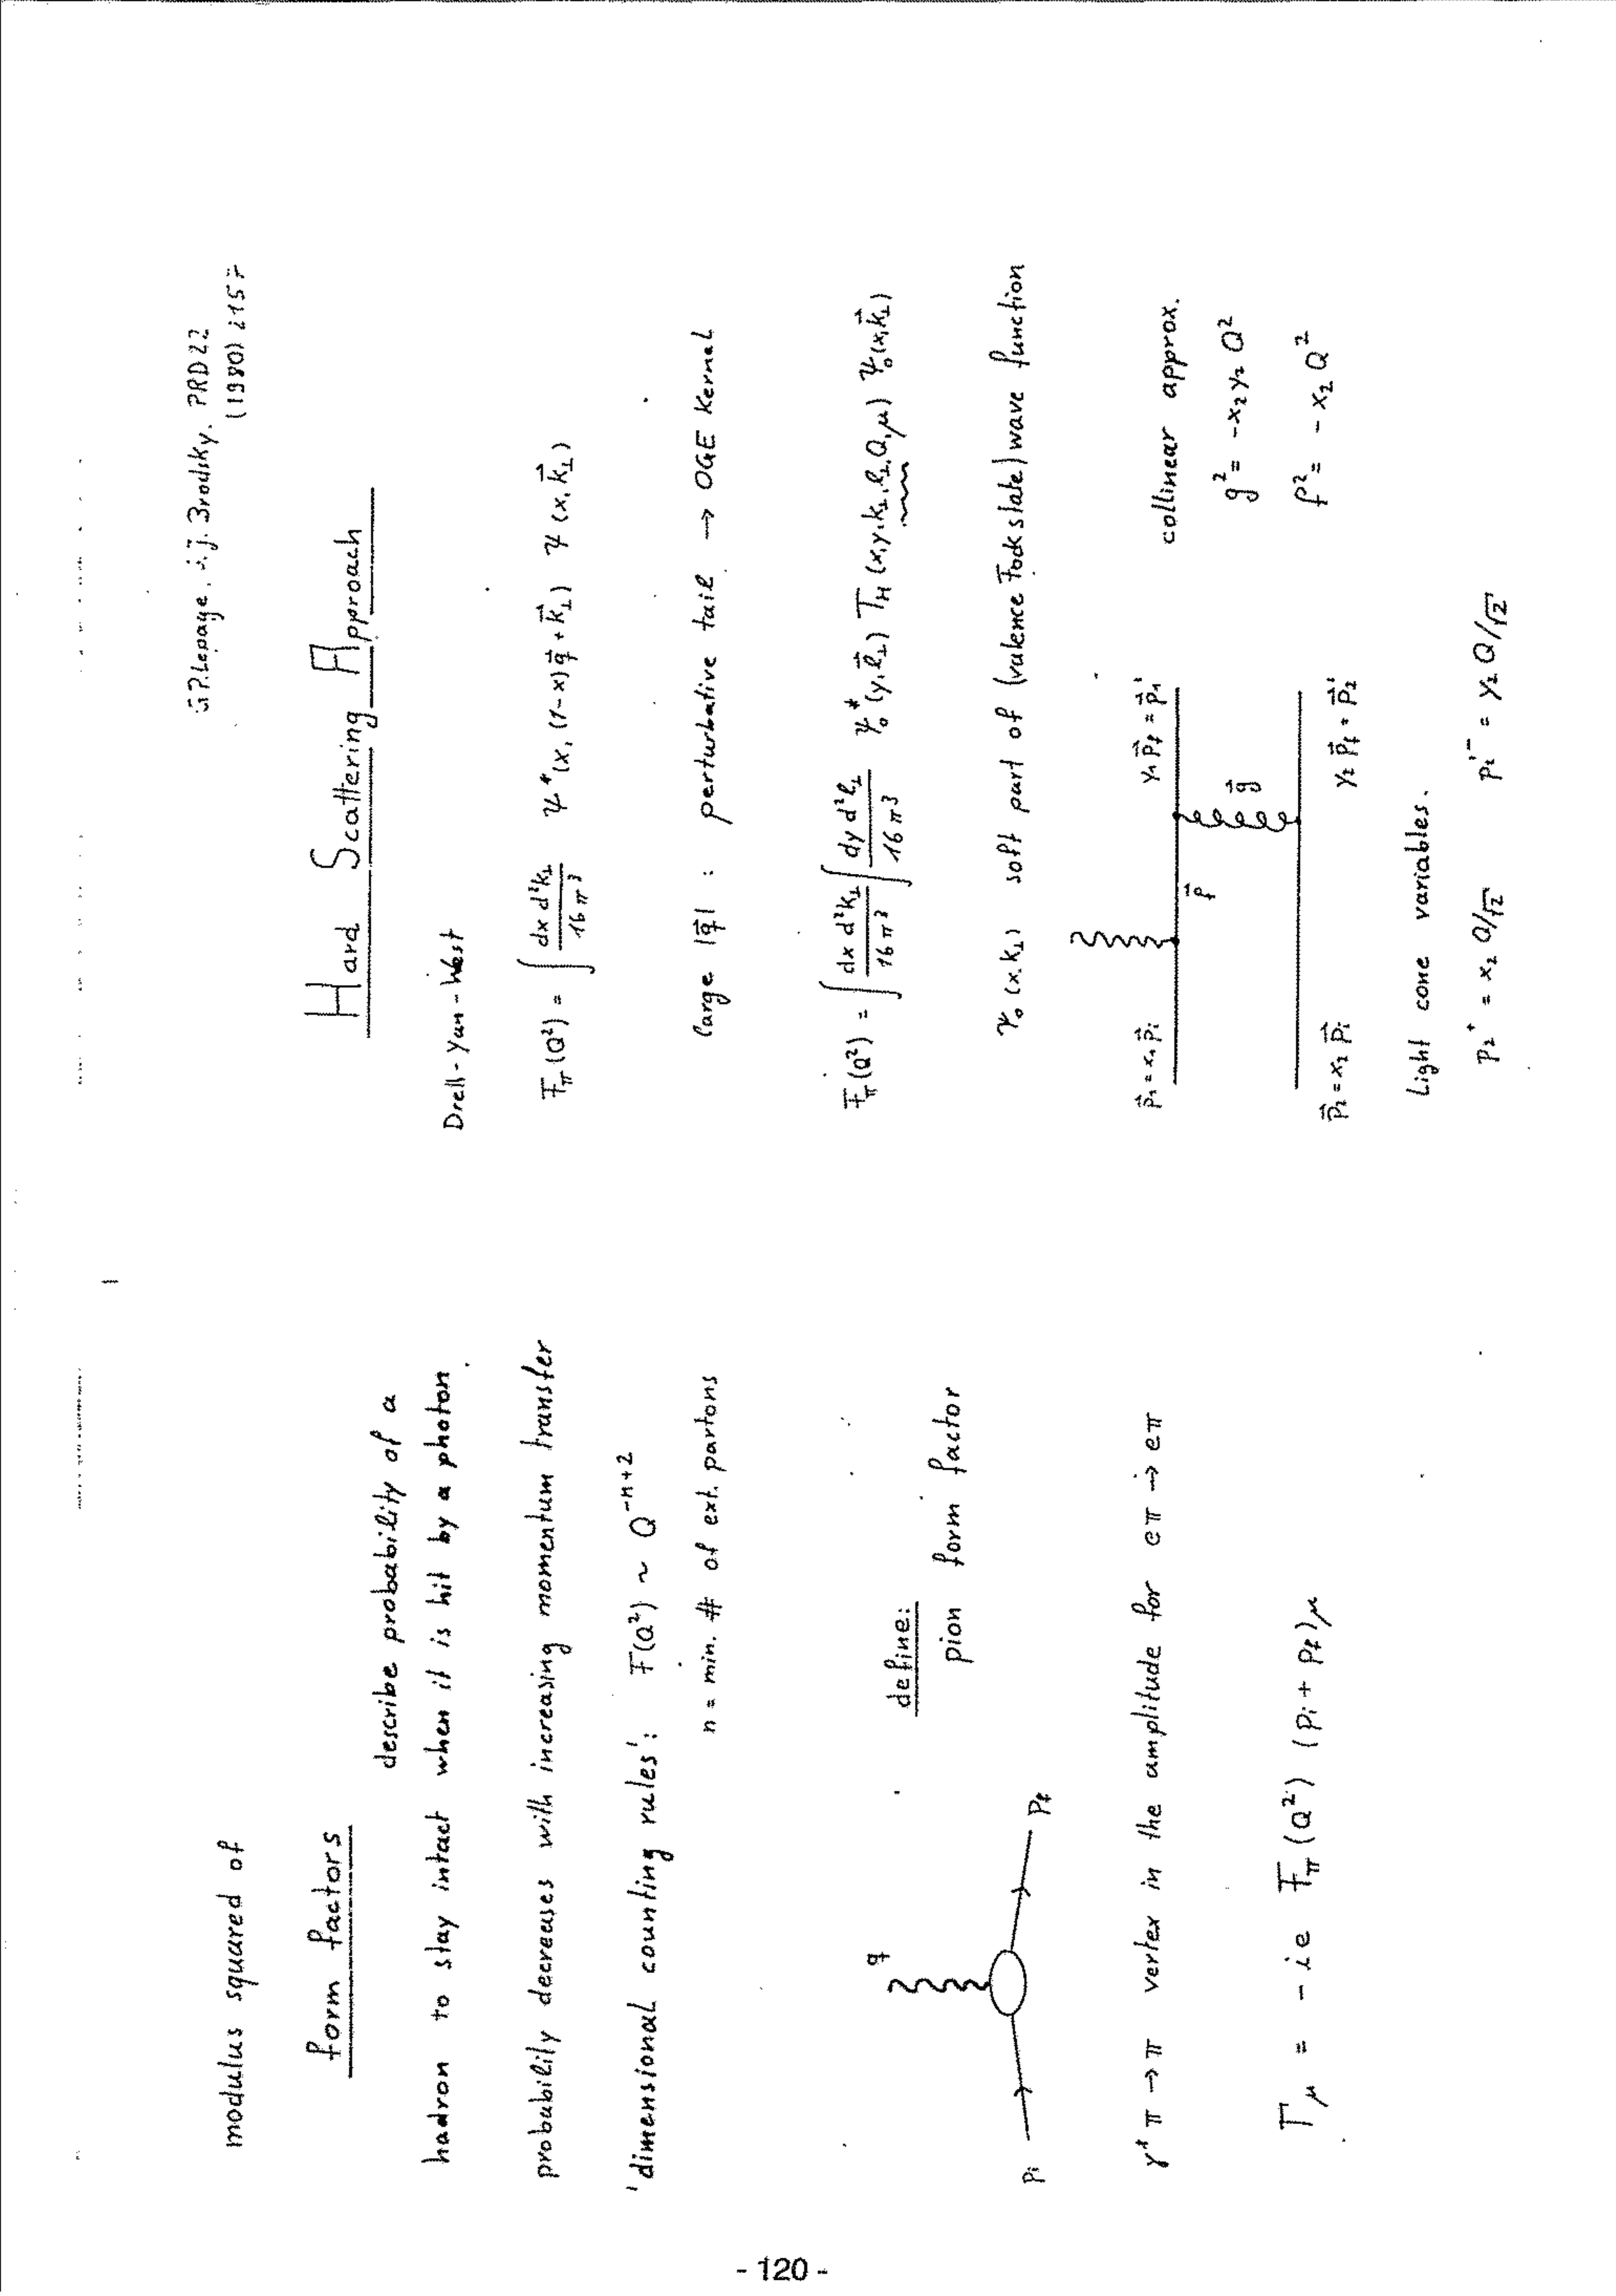 modulus squared of
form factors
describe probability of a
hadron to stay intact when it is hit by a photon
probability decreases with increasing momentum transfer
'dimensional counting rules': F(Q²) ~ Q⁻ⁿ⁺²
n = min. # of ext. partons
define:
pion form factor
q
pᵢ
p_f
γ* π → π vertex in the amplitude for eπ → eπ
Γ_μ = -ie F_π(Q²) (pᵢ + p_f)_μ
G.P. Lepage, S.J. Brodsky. PRD22
(1980) 2157
Hard Scattering Approach
Drell-Yan-West
F_π(Q²) = ∫ dx d²k_⊥ / 16π³ ψ*(x, (1-x)q⃗ + k⃗_⊥) ψ(x, k⃗_⊥)
large |q⃗| : perturbative tail → OGE Kernel
F_π(Q²) = ∫ dx d²k_⊥ / 16π³ ∫ dy d²l_⊥ / 16π³ ψ₀*(y, l⃗_⊥) T_H(x,y,k_⊥,l_⊥,Q,μ) ψ₀(x,k⃗_⊥)
ψ₀(x,k_⊥) soft part of (valence Fock state) wave function
p⃗₁ = x₁p⃗ᵢ
y₁p⃗_f = p⃗₁'
collinear approx.
f⃗
g⃗
g² = -x₂y₂Q²
f² = -x₂Q²
p⃗₂ = x₂p⃗ᵢ
y₂p⃗_f = p⃗₂'
Light cone variables.
p₂⁺ = x₂ Q/√2
p₂'⁻ = y₂ Q/√2
- 120 -